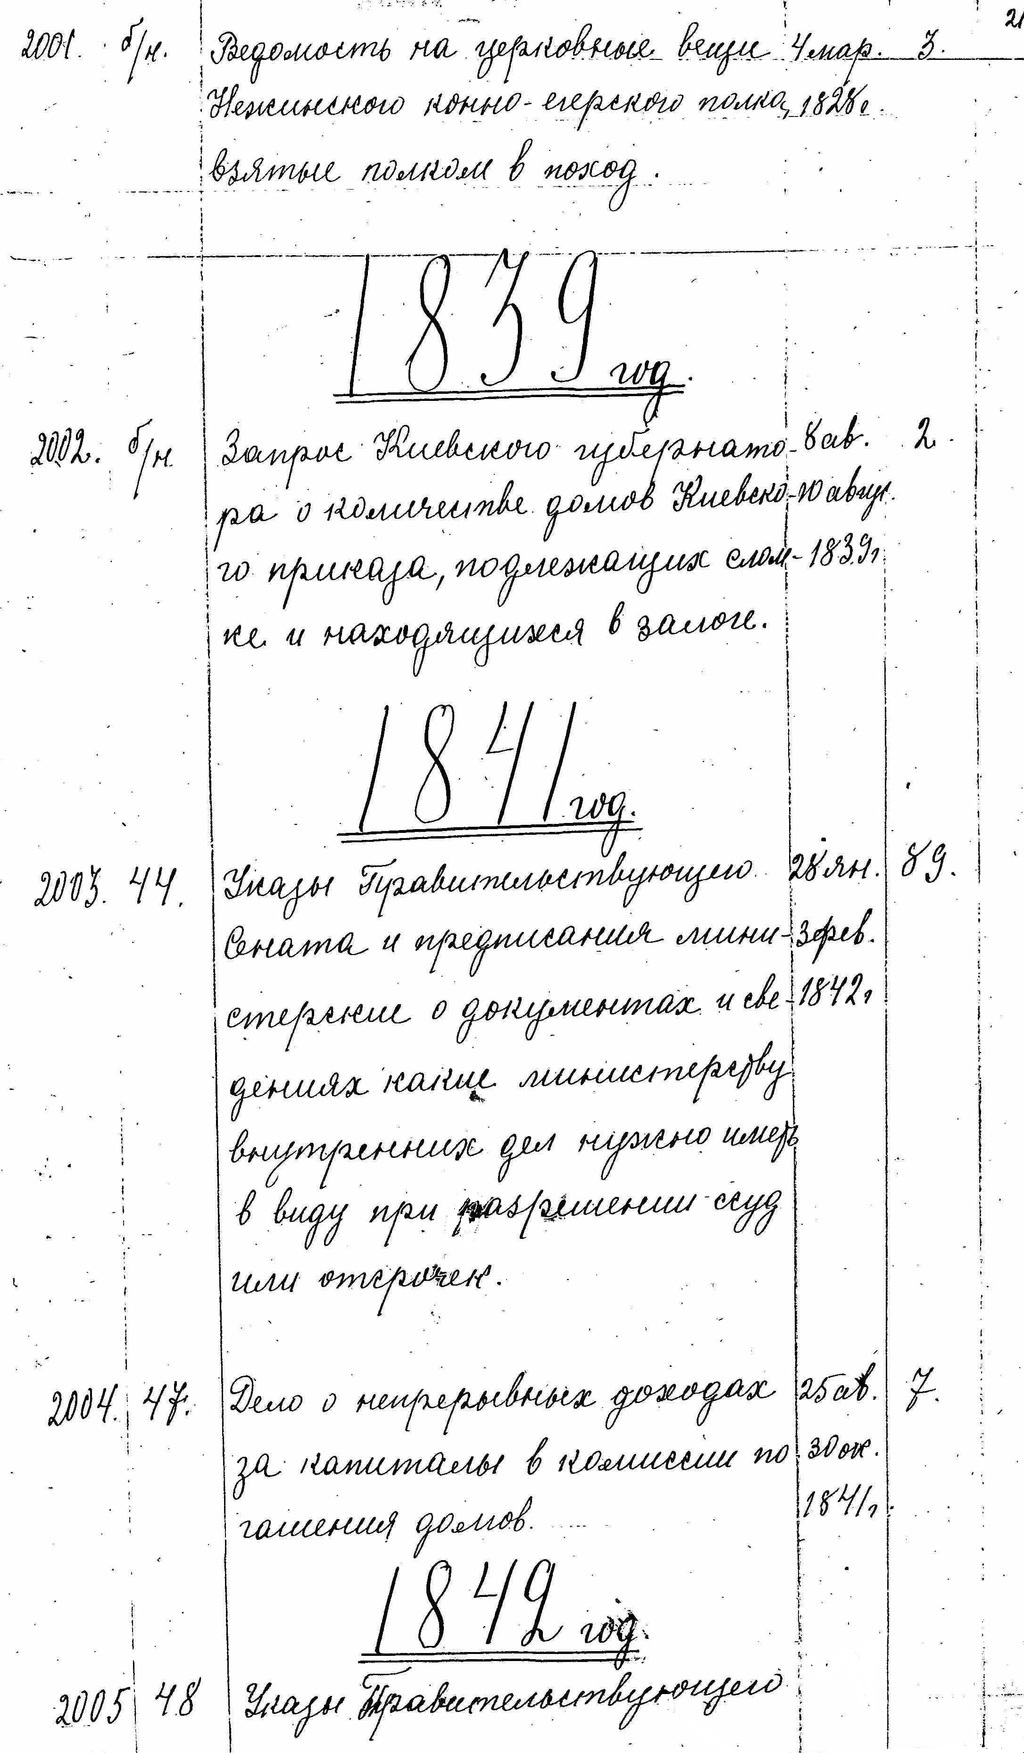 21
2001. б/н. Ведомость на церковные вещи 4 мар. 3.
Нежинского конно-егерского полка, 1828г.
взятые полком в поход.
1839 год.
2002. б/н Запрос Киевского губернато- 8 ав. 2.
ра о количестве домов Киевско- 10 август.
го приказа, подлежащих слом- 1839г.
ке и находящихся в залоге.
1841 год.
2003. 44. Указы Правительствующего 28 ян. 89.
Сената и предписания мини- 3 фев.
стерские о документах и све- 1842г
дениях какие министерству
внутренних дел нужно иметь
в виду при разрешении ссуд
или отсрочек.
2004. 47. Дело о непрерывных доходах 25 ав. 7.
за капиталы в комиссии по 30 ок.
гашения домов. 1841г.
1842 год.
2005 48 Указы Правительствующего